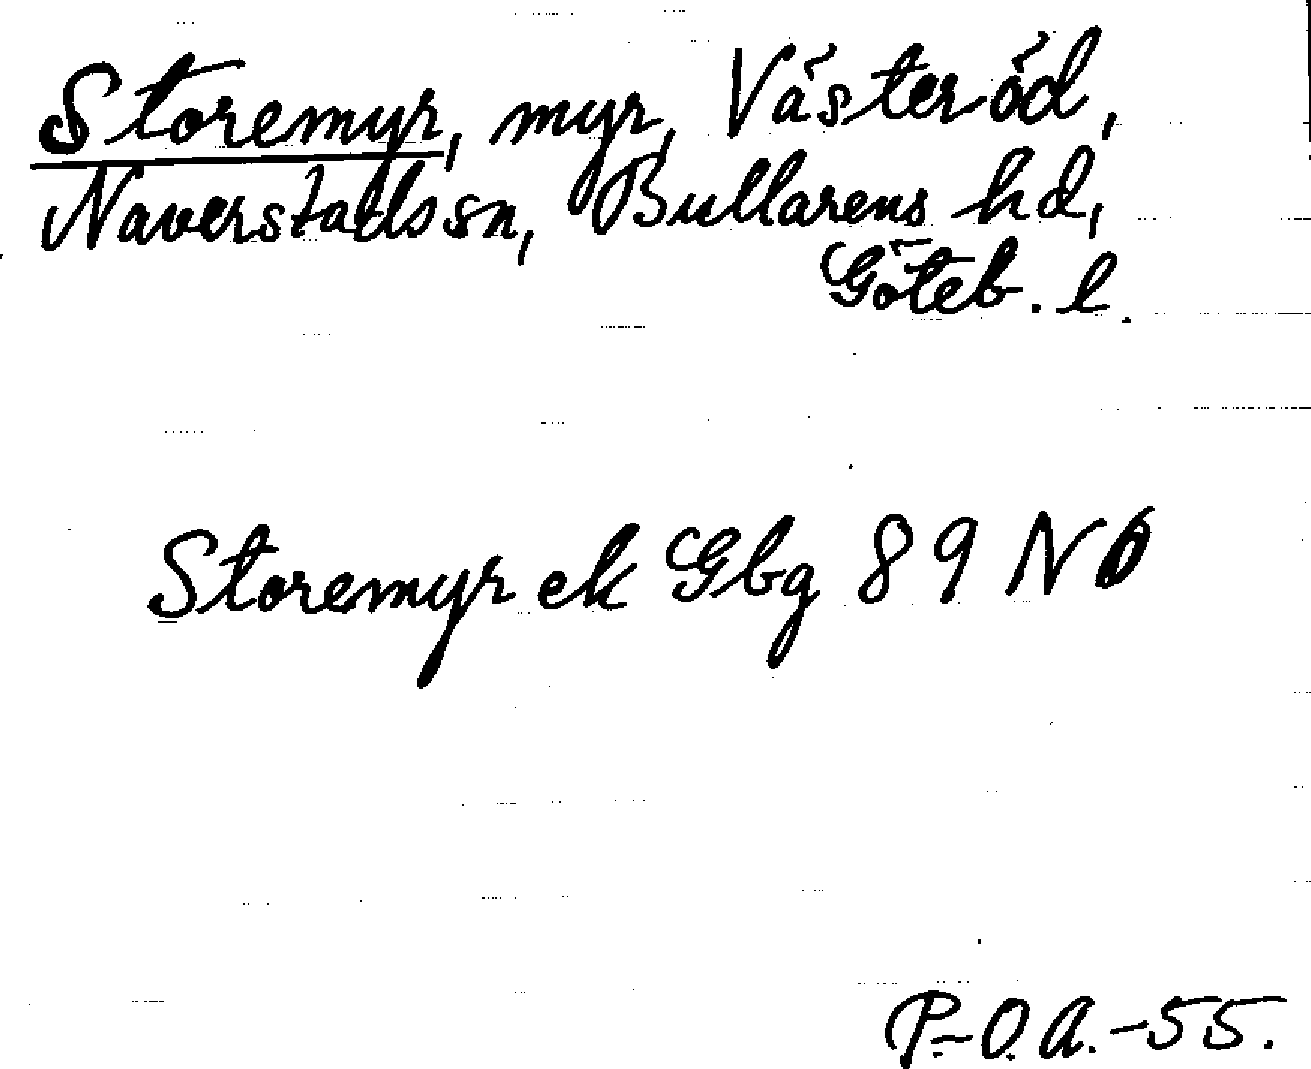 Storemyr, myr, Västeröd,
Naverstads sn, Bullarens hd,
Göteb. l.
Storemyr ek Gbg 89 NÖ
P-O.A.-55.